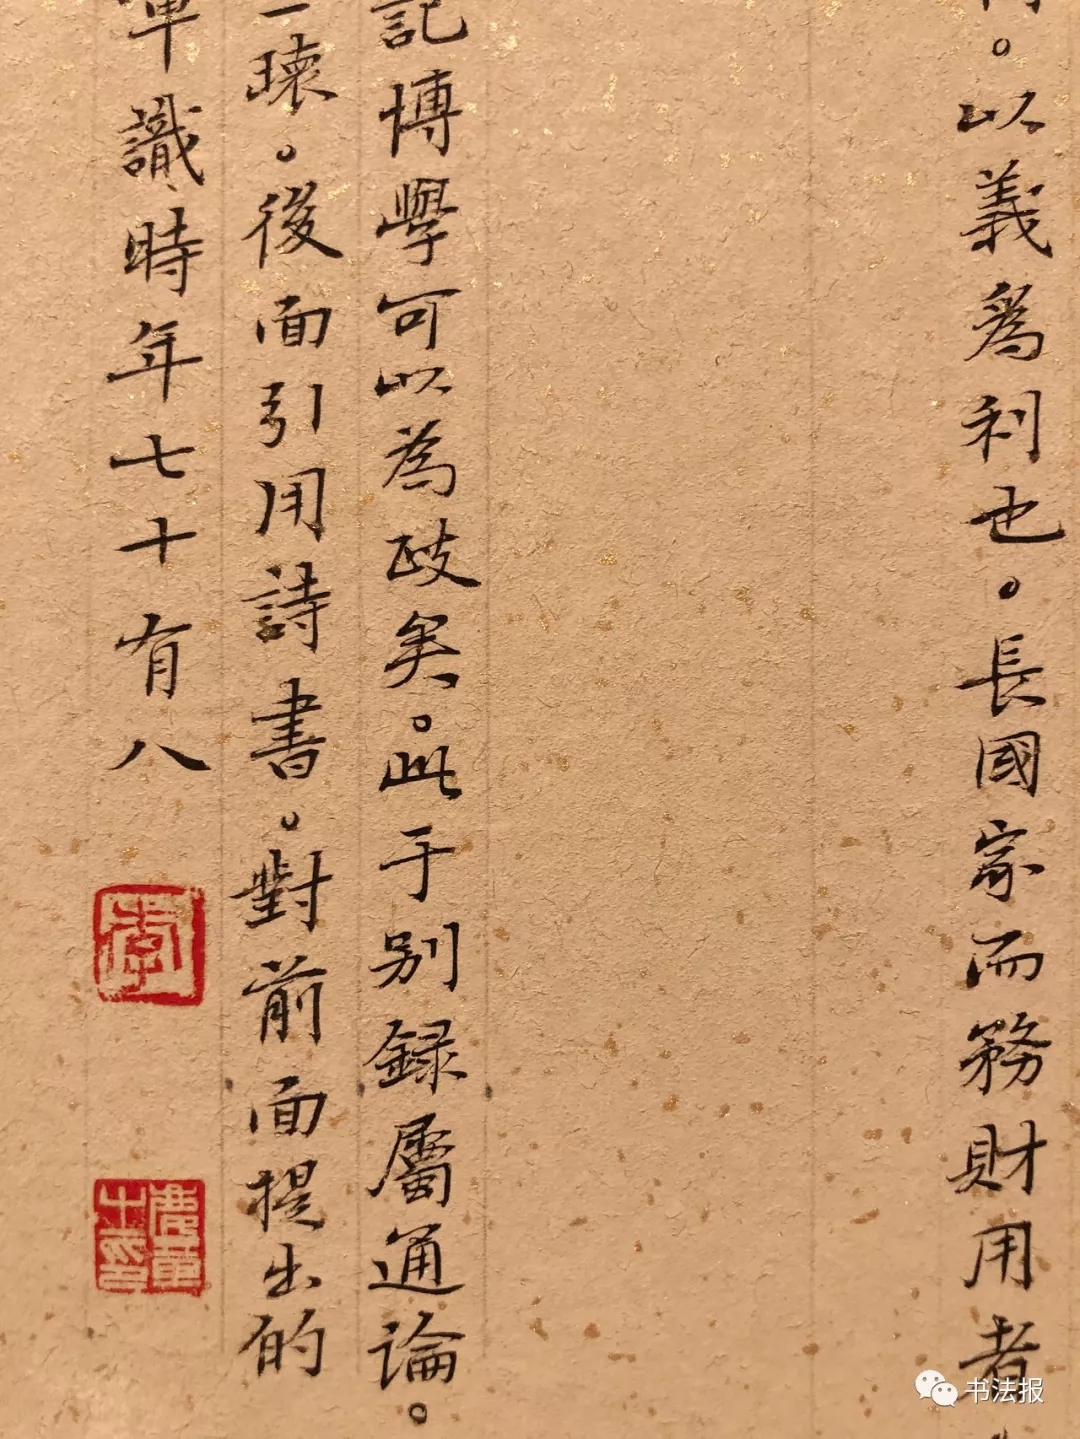 。以義為利也。長國家而務財用者
記博學可以為政矣。此于别録屬通論。
一環。後面引用詩書。對前面提出的
軍識時年七十有八
李
书法报